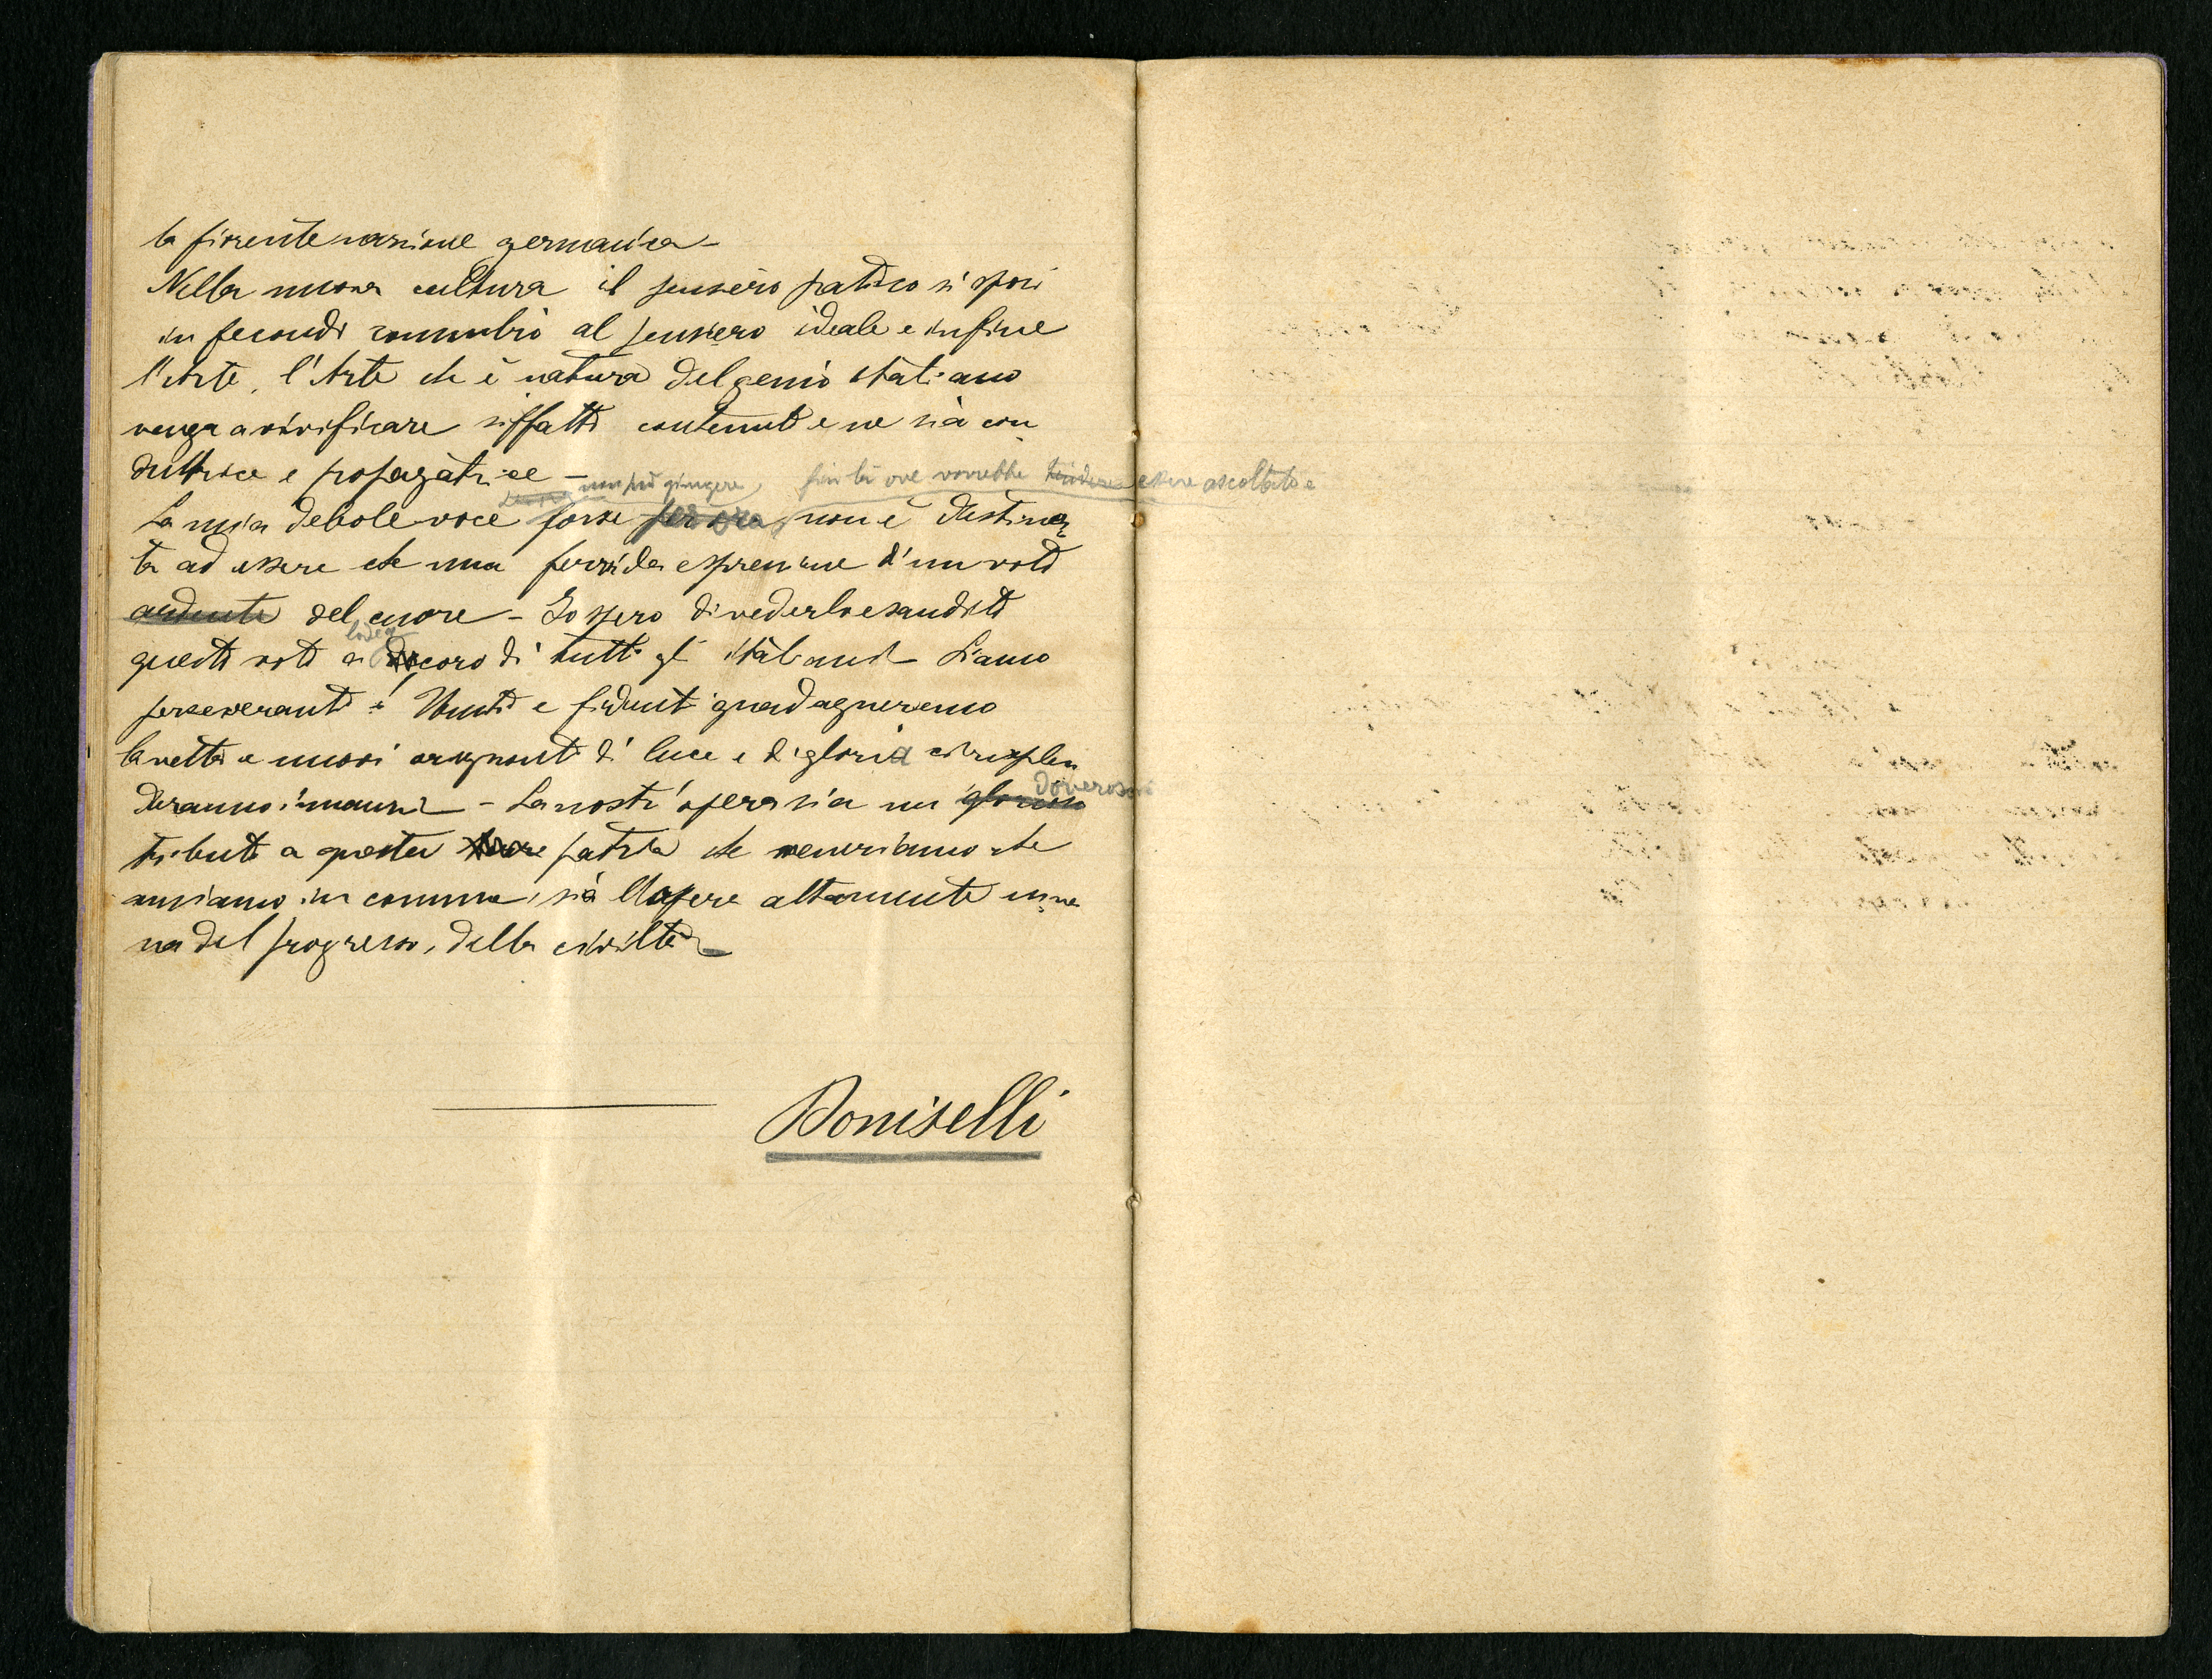 la fiorente nazione germanica –
Nella nuova cultura il pensiero pratico si sposi
in fecondo connubio al pensiero ideale e infine
l'Arte, l'Arte che è natura del genio italiano
venga a vivificare siffatti contenuti e ne sia con
duttrice e propagatrice –
non può giungere, fin là ove vorrebbe tendere essere ascoltata e
La mia debole voce forse per ora, non è destina
ta ad essere che una fervida espressione d'un voto
ardente del cuore – Io spero di vederlo esaudito
questo voto a decoro di tutti gli italiani – Siamo
perseveranti e Uniti e fidenti guadagneremo
la vetta e nuovi orizzonti di luce e di gloria ci risplen
doveroso
deranno innanzi – La nostr'opera sia un glorioso
tributo a questa patria che veneriamo che
amiamo in comune, sia l'opera altamente uma
na del progresso, della civiltà
Doniselli